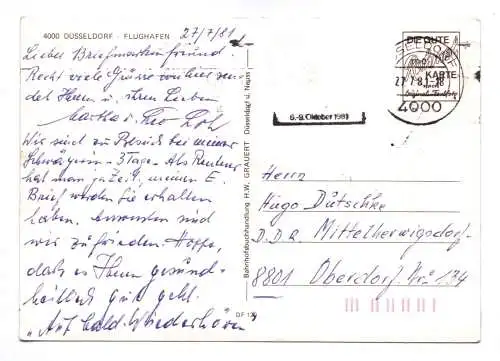 4000 DÜSSELDORF - FLUGHAFEN
27/7/81
Lieber Briefmarkenfreund.
Recht viele Grüsse von hier sen-
det Ihnen u. Ihren Lieben
Martha u. Theo
Wir sind zu Besuch bei meiner
Schwägerin - 3 Tage. Als Rentner
hat man ja Zeit, meinen E.
Brief werden Sie erhalten
haben. Ansonsten sind
wir zufrieden. Hoffe,
daß es Ihnen gesund-
heitlich gut geht.
"Auf bald. Wiederhören"
Bahnhofsbuchhandlung H.W. GRAUERT Düsseldorf u. Neuss
DF
DIE GUTE
KARTE
27.7.81-18
4000
6.-9. Oktober 1981
Herrn
Hugo Dutschke
D.D.R. Mittelherwigsdorf
8801 Oberdorf. Nr. 134